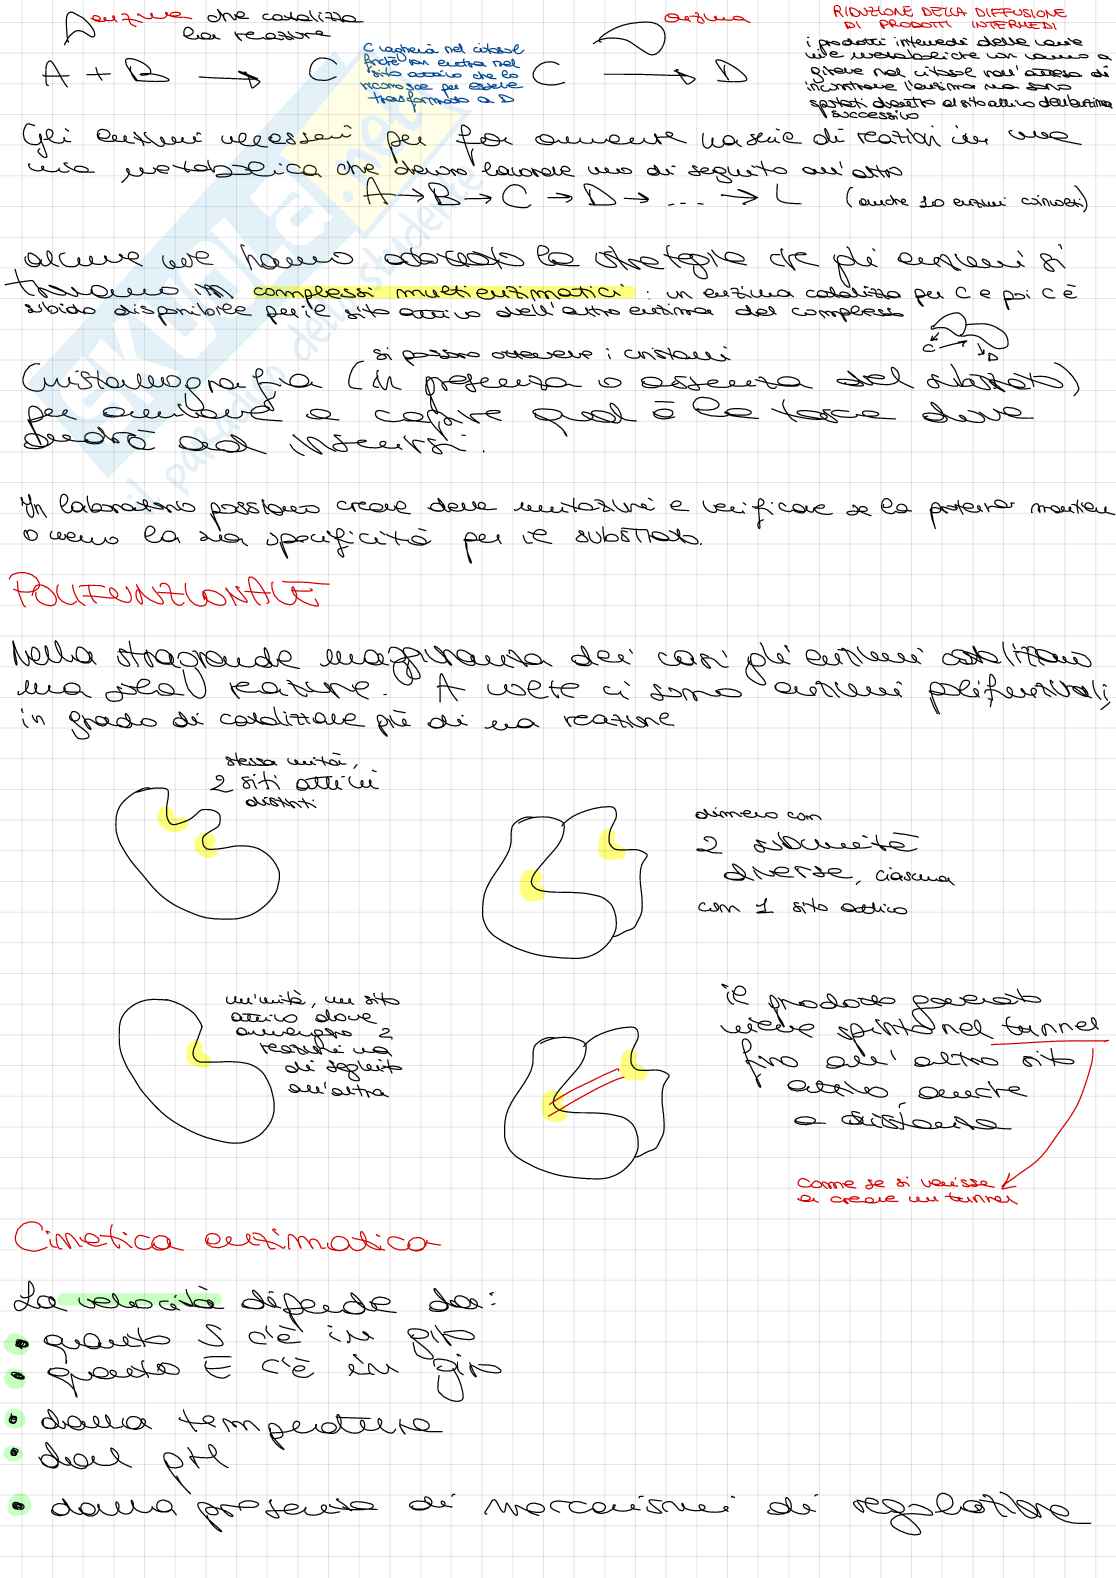 enzima che catalizza
la reazione
A + B → C
C vagherà nel citosol
finché non entra nel
sito attivo che lo
riconosce per essere
trasformato a D
enzima
C → D
RIDUZIONE DELLA DIFFUSIONE
DI PRODOTTI INTERMEDI
i prodotti intermedi delle varie
vie metaboliche non vanno a
girare nel citosol nell'attesa di
incontrare l'enzima ma sono
spostati diretto al sito attivo dell'enzima
successivo
Gli enzimi necessari per far avvenire una serie di reazioni in una
via metabolica che devono lavorare uno di seguito all'altro
A → B → C → D → ... → L (anche 10 enzimi coinvolti)
alcune vie hanno adottato la strategia che gli enzimi si
trovano in complessi multienzimatici : un enzima catalizza per C e poi C è
subito disponibile per il sito attivo dell'altro enzima del complesso
C D
si possono ottenere i cristalli
Cristallografia (in presenza o assenza del substrato)
per arrivare a capire qual è la tasca dove
andrà ad inserirsi.
In laboratorio possiamo creare delle mutazioni e verificare se la proteina mantiene
o meno la sua specificità per il substrato.
POLIFUNZIONALE
Nella stragrande maggioranza dei casi gli enzimi catalizzano
una sola reazione. A volte ci sono enzimi polifunzionali,
in grado di catalizzare più di una reazione
stessa unità,
2 siti attivi
distinti
dimero con
2 subunità
diverse, ciascuna
con 1 sito attivo
un'unità, un sito
attivo dove
avvengono 2
reazioni una
di seguito
all'altra
il prodotto generato
viene spinto nel tunnel
fino all'altro sito
attivo, anche
a distanza
come se si venisse
a creare un tunnel
Cinetica enzimatica
La velocità dipende da:
• quanto S c'è in giro
• quanto E c'è in giro
• dalla temperatura
• dal pH
• dalla presenza di meccanismi di regolazione